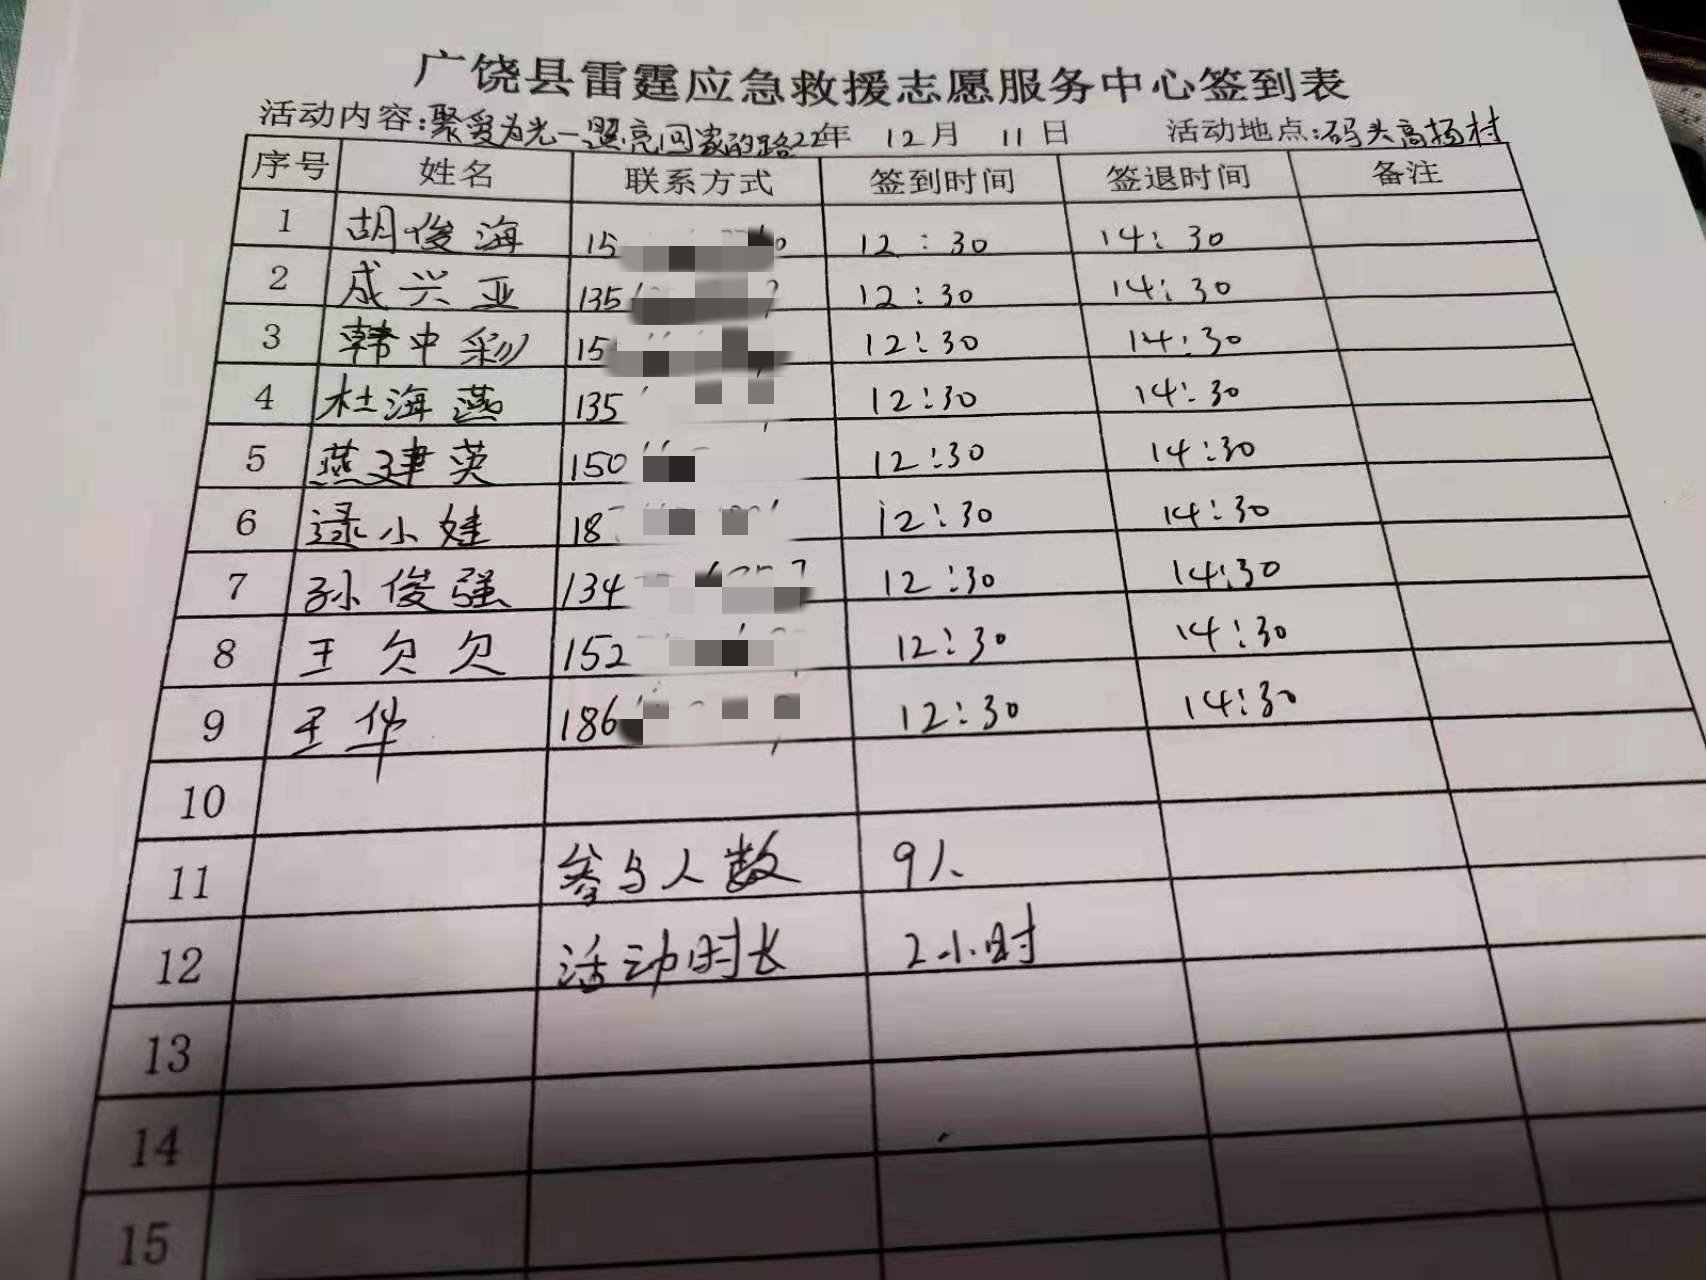 广饶县雷霆应急救援志愿服务中心签到表
活动内容:聚爱为光一照亮回家的路22年 12月 11日 活动地点:码头高杨村
序号 姓名 联系方式 签到时间 签退时间 备注
1 胡俊海 15 12:30 14:30
2 成兴亚 135 12:30 14:30
3 韩中彩 15 12:30 14:30
4 杜海燕 135 12:30 14:30
5 燕建英 150 12:30 14:30
6 逯小娃 18 12:30 14:30
7 孙俊强 134 12:30 14:30
8 王欠欠 152 12:30 14:30
9 王华 186 12:30 14:30
10
11 参与人数 9人
12 活动时长 2小时
13
14
15